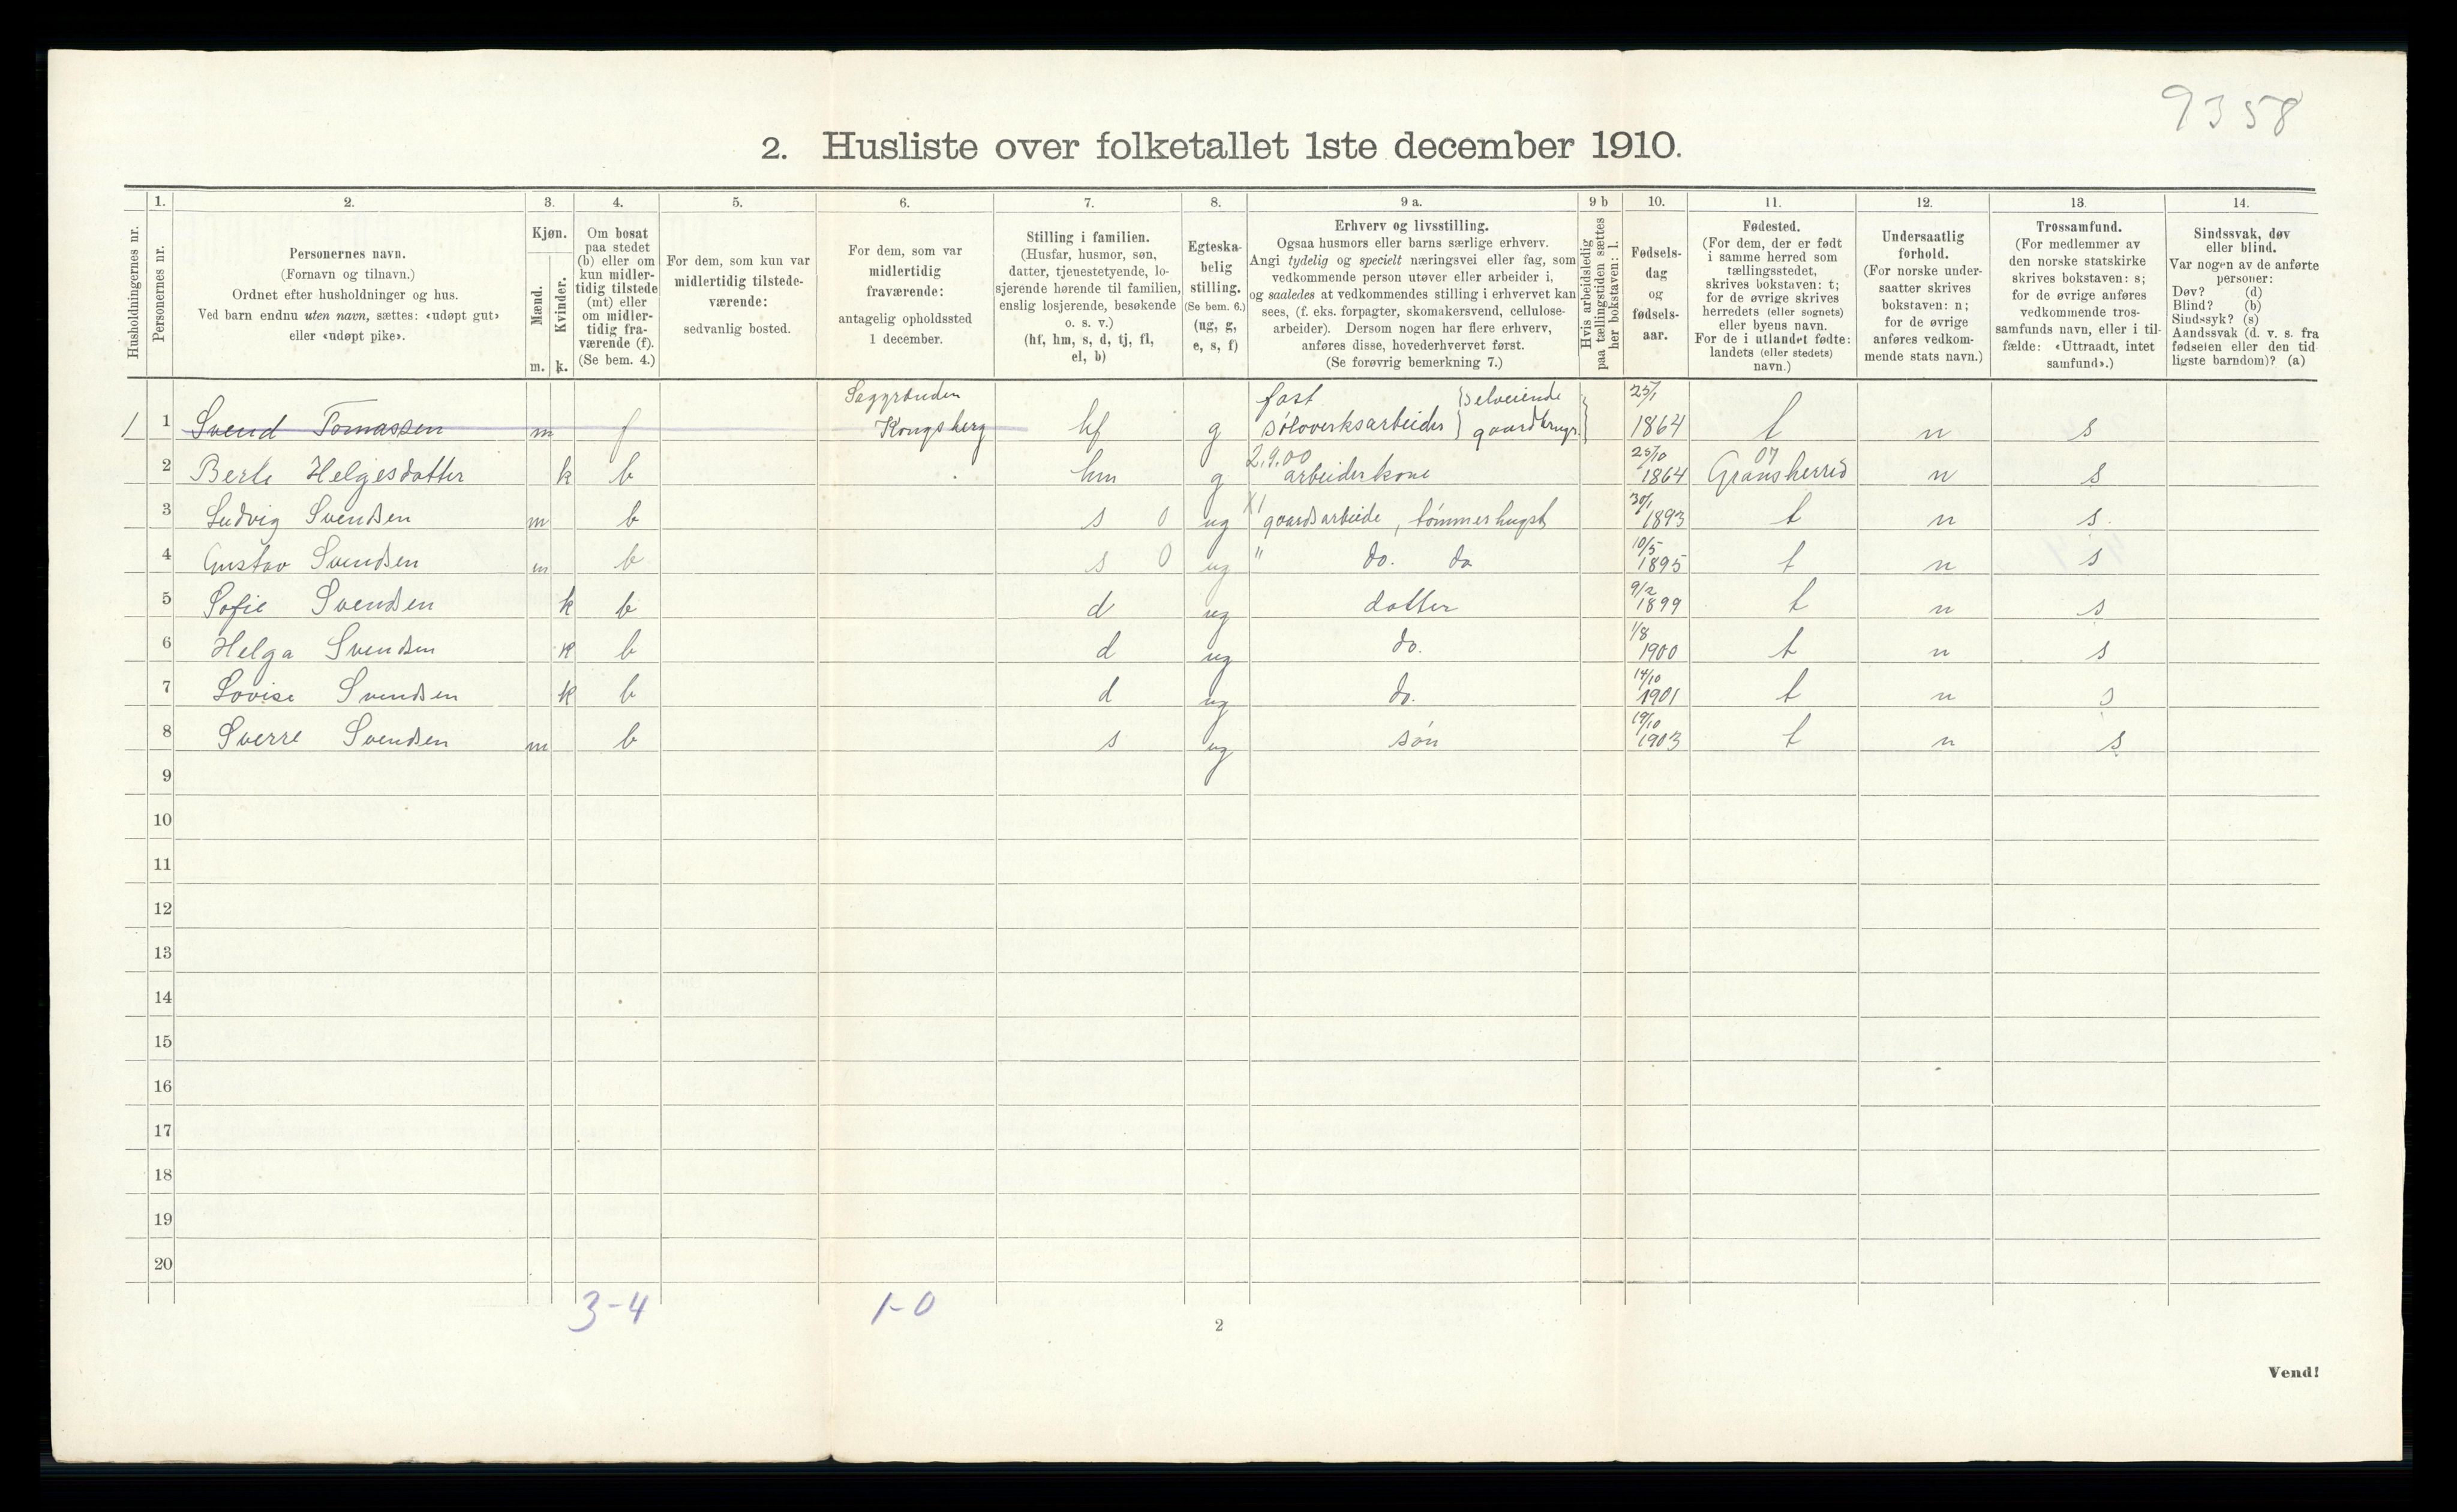 9358
2. Husliste over folketallet 1ste december 1910.
Husholdningernes nr.
1. Personernes nr.
2. Personernes navn.
(Fornavn og tilnavn.)
Ordnet efter husholdninger og hus.
Ved barn endnu uten navn, sættes: «udøpt gut»
eller «udøpt pike».
3. Kjøn.
Mænd. m.
Kvinder. k.
4. Om bosat
paa stedet
(b) eller om
kun midler-
tidig tilstede
(mt) eller
om midler-
tidig fra-
værende (f).
(Se bem. 4.)
5. For dem, som kun var
midlertidig tilstede-
værende:
sedvanlig bosted.
6. For dem, som var
midlertidig
fraværende:
antagelig opholdssted
1 december.
7. Stilling i familien.
(Husfar, husmor, søn,
datter, tjenestetyende, lo-
sjerende hørende til familien,
enslig losjerende, besøkende
o. s. v.)
(hf, hm, s, d, tj, fl,
el, b)
8. Egteska-
belig
stilling.
(Se bem. 6.)
(ug, g,
e, s, f)
9 a. Erhverv og livsstilling.
Ogsaa husmors eller barns særlige erhverv.
Angi tydelig og specielt næringsvei eller fag, som
vedkommende person utøver eller arbeider i,
og saaledes at vedkommendes stilling i erhvervet kan
sees, (f. eks. forpagter, skomakersvend, cellulose-
arbeider). Dersom nogen har flere erhverv,
anføres disse, hovederhvervet først.
(Se forøvrig bemerkning 7.)
9 b Hvis arbeidsledig
paa tællingstiden sættes
her bokstaven: l.
10. Fødsels-
dag
og
fødsels-
aar.
11. Fødested.
(For dem, der er født
i samme herred som
tællingsstedet,
skrives bokstaven: t;
for de øvrige skrives
herredets (eller sognets)
eller byens navn.
For de i utlandet fødte:
landets (eller stedets)
navn.)
12. Undersaatlig
forhold.
(For norske under-
saatter skrives
bokstaven: n;
for de øvrige
anføres vedkom-
mende stats navn.)
13. Trossamfund.
(For medlemmer av
den norske statskirke
skrives bokstaven: s;
for de øvrige anføres
vedkommende tros-
samfunds navn, eller i til-
fælde: «Uttraadt, intet
samfund».)
14. Sindssvak, døv
eller blind.
Var nogen av de anførte
personer:
Døv? (d)
Blind? (b)
Sindssyk? (s)
Aandssvak (d. v. s. fra
fødselen eller den tid-
ligste barndom)? (a)
1 1 Svend Tomassen m f Saggrenden Kongsberg hf g fast søloverksarbeider } selveiende gaardbruger } 25/1 1864 t n s
2 Berte Helgesdatter k b hm g 2,9.00 arbeiderkone 25/10 1864 07 Gransherred n s
3 Ludvig Svendsen m b s 0 ug X1 gaardsarbeide, tømmerhugst 30/1 1893 t n s
4 Gustav Svendsen m b s 0 ug " do. do 10/5 1895 t n s
5 Sofie Svendsen k b d ug datter 9/2 1899 t n s
6 Helga Svendsen k b d ug do. 1/8 1900 t n s
7 Lovise Svendsen k b d ug do. 14/10 1901 t n s
8 Sverre Svendsen m b s ug søn 19/10 1903 t n s
9
10
11
12
13
14
15
16
17
18
19
20
3-4 1-0
2
Vend!